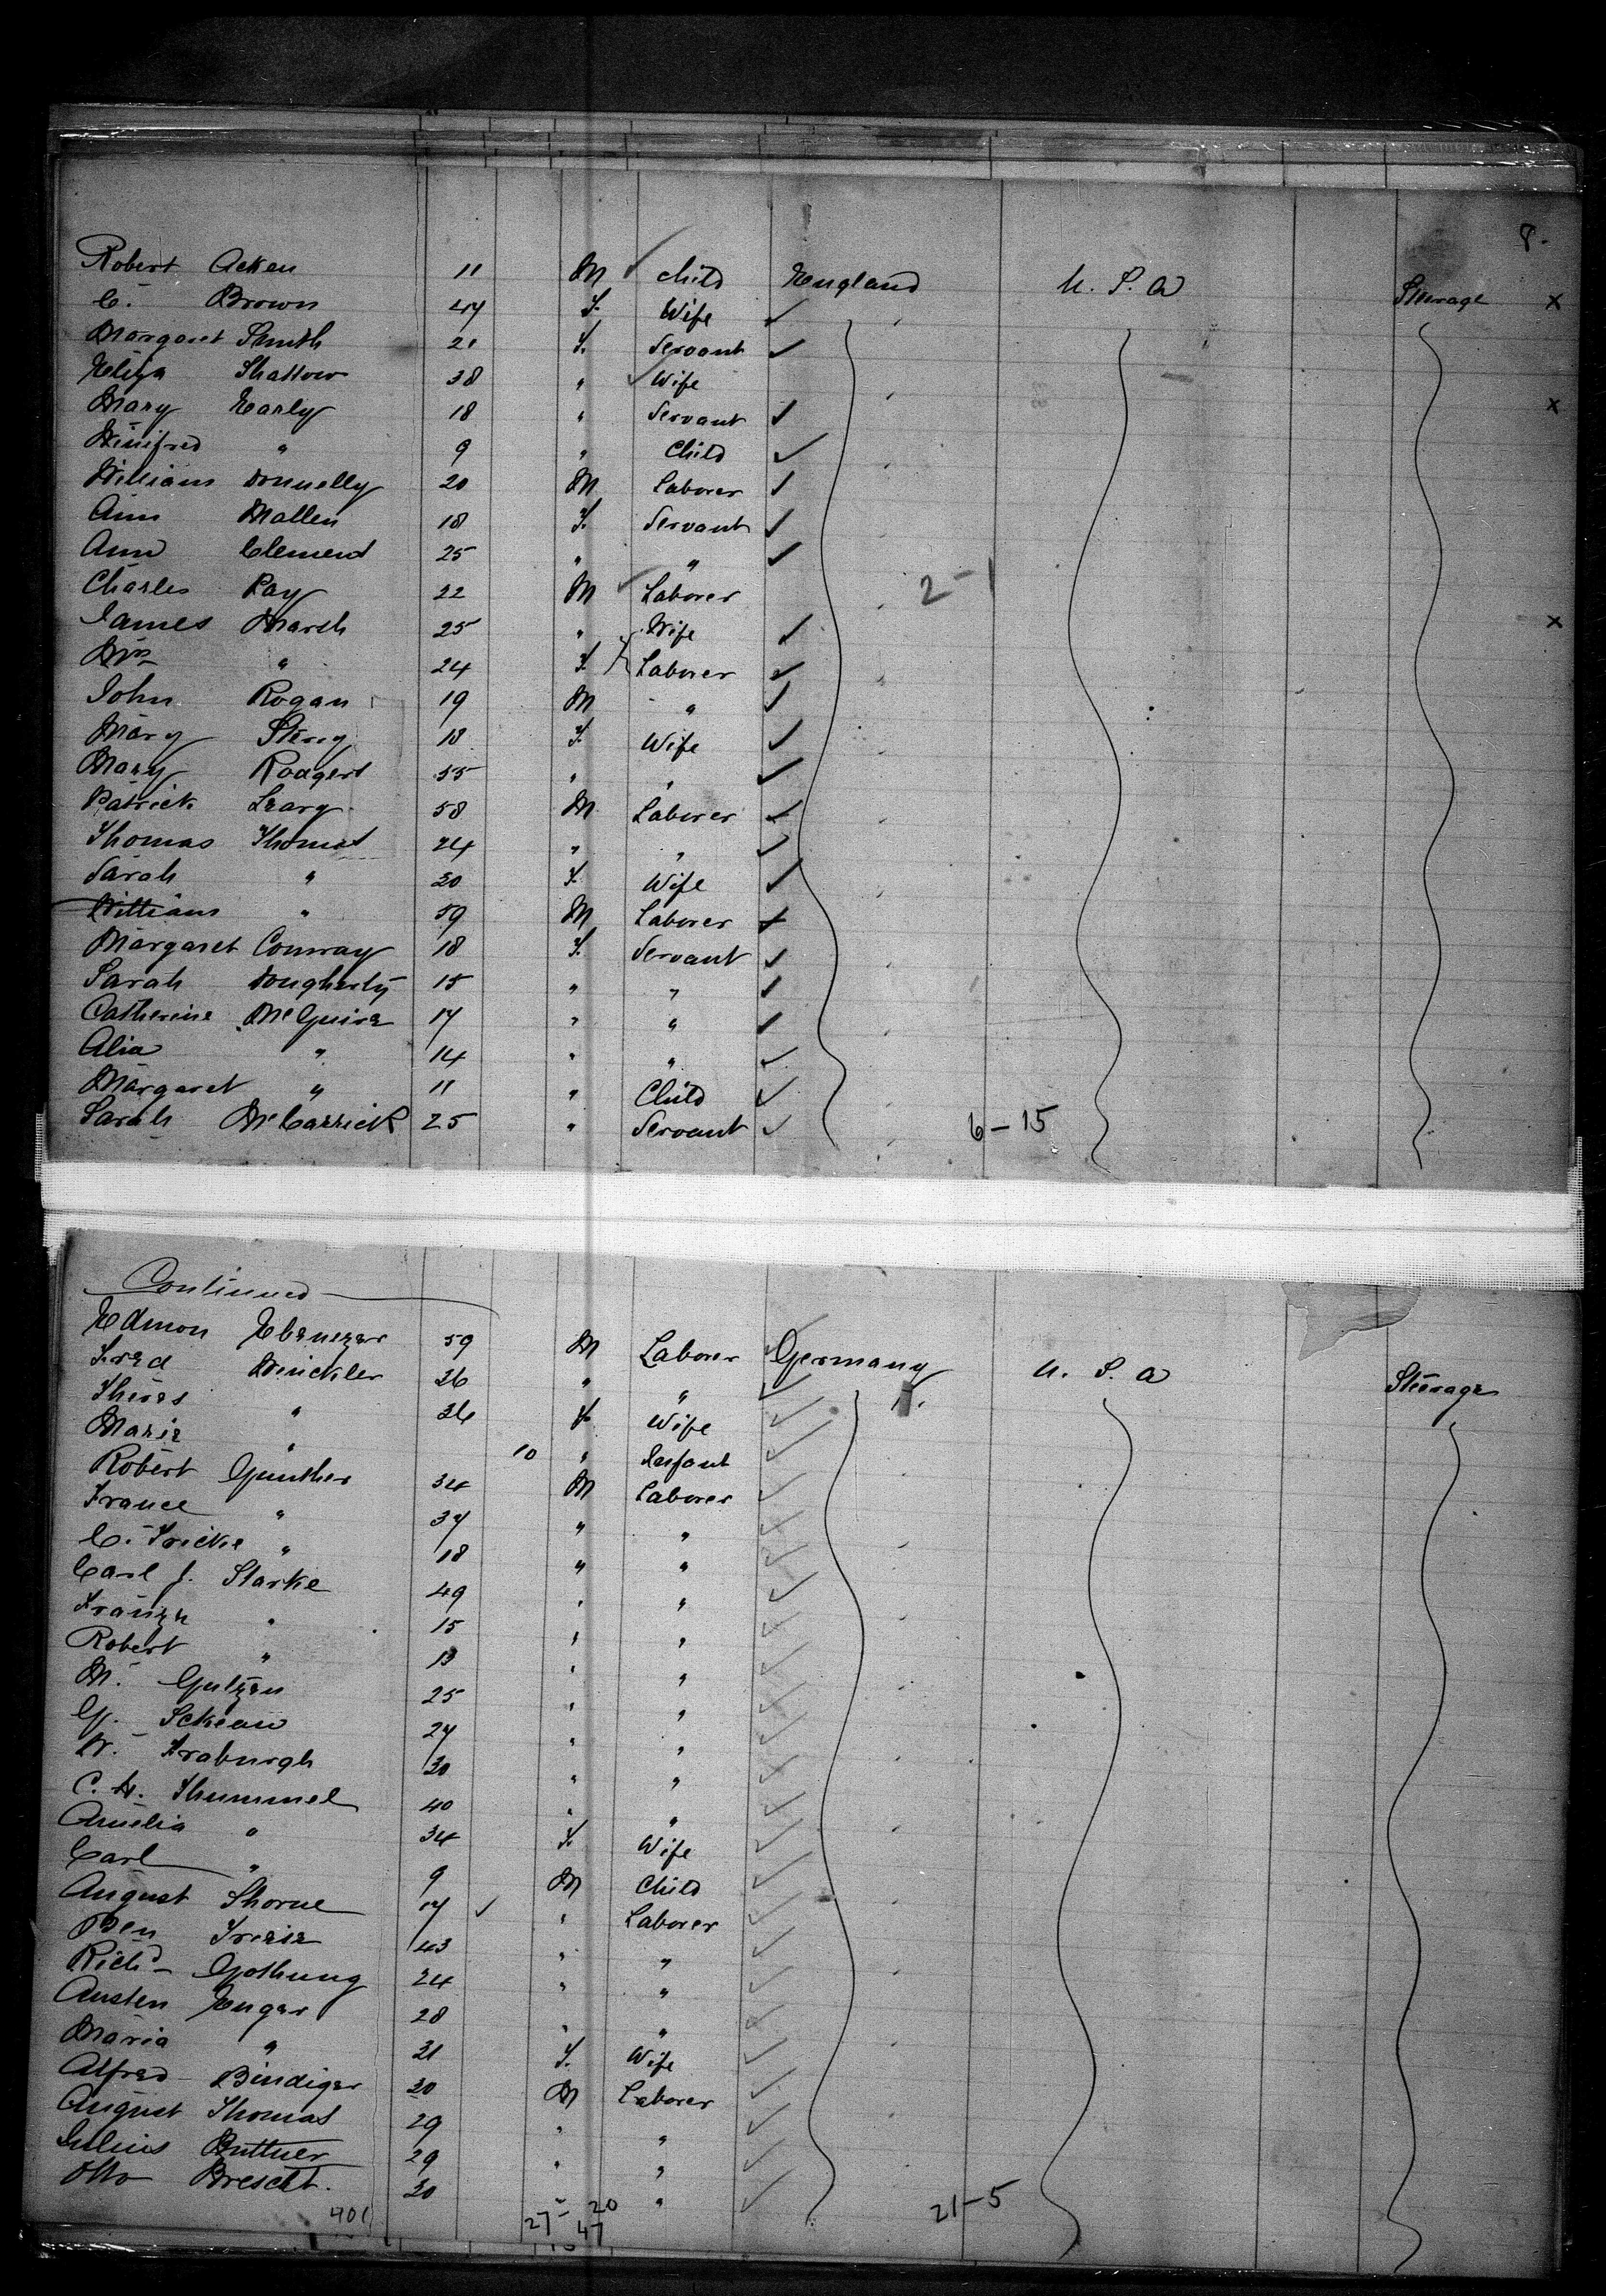 8.
Robert Acken 11 M Child England U. S. A Steerage x
C. Brown 47 F. Wife
Margaret Smith 21 F. Servant
Eliza Shattow 38 " Wife
Mary Early 18 " Servant x
Winifred " 9 " Child
William Donnelly 20 M Laborer
Ann Mallen 18 F. Servant
Ann Clement 25 " "
Charles Ray 22 M Laborer 2-1
James Marsh 25 " Wife x
Mrs " 24 F. Laborer
John Rogan 19 M "
Mary 18 F. Wife
Mary Rodgers 55 " "
Patrick Leary 58 M Laborer
Thomas Thomas 24 " "
Sarah " 20 F. Wife
William " 59 M Laborer
Margaret Conway 18 F. Servant
Sarah Dougherty 15 " "
Catherine McGuire 17 " "
Alia " 14 " "
Margaret " 11 " Child
Sarah McCarrick 25 " Servant 6-15
Continued
Edmon Ebenezer 59 M Laborer Germany U. S. A Steerage
Fred Winckler 26 " "
" 26 F. Wife
Marie " 10 " Infant
Robert Gunther 34 M Laborer
France " 37 " "
C. Fricke " 18 " "
Carl J. Starke 49 " "
" 15 " "
Robert " 13 " "
M. Gulzen 25 " "
G. 27 " "
W. Fraburgh 30 " "
C. H. Thummel 40 " "
Amelia " 34 F. Wife
Carl " 9 M Child
August Thorne 17 " Laborer
Ben 43 " "
Richd Gothung 24 " "
Austen Enger 28 " "
Maria " 31 F. Wife
Alfred Bindiger 30 M Laborer
August Thomas 29 " "
Julius Buttner 29 " "
Otto Brescht. 30 " " 21-5
401 27-20
47